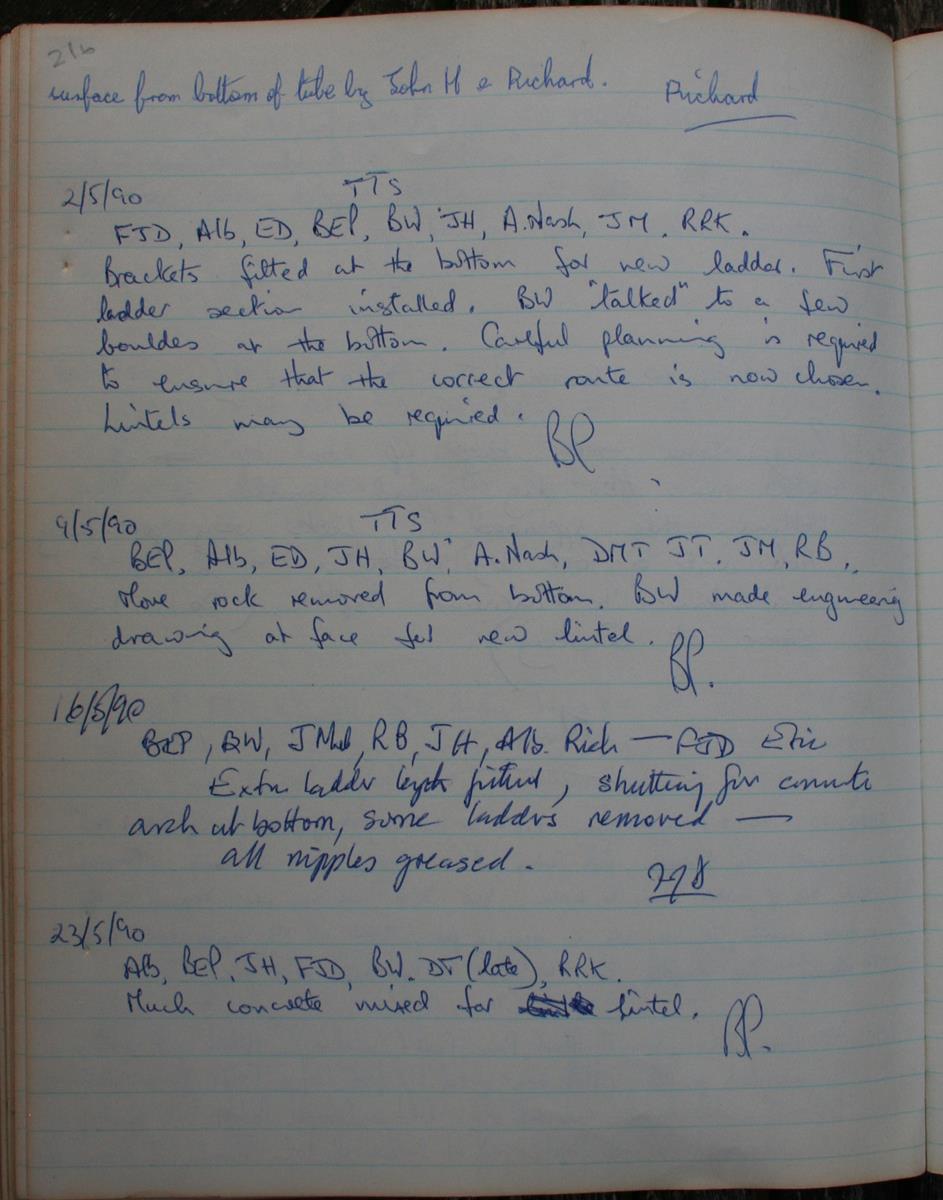 216
surface from bottom of tube by John H & Richard. Richard
2/5/90 TTS
FJD, Alb, ED, BEP, BW, JH, A.Nash, JM, RRK.
Brackets fitted at the bottom for new ladder. First
ladder section installed. BW "talked" to a few
boulders at the bottom. Careful planning is required
to ensure that the correct route is now chosen.
Lintels may be required. BP
9/5/90 TTS
BEP, Alb, ED, JH, BW, A.Nash, DMT JT, JM, RB,
More rock removed from bottom. BW made engineering
drawing at face for new lintel. BP.
16/5/90
BEP, BW, RB, JH, Alb. Rich — FJD Eric
Extra ladder length fitted, shutting for concrete
arch at bottom, some ladders removed —
all nipples greased.
23/5/90
Alb, BEP, JH, FJD, BW. DT (late), RRK.
Much concrete mixed for lintel. BP.